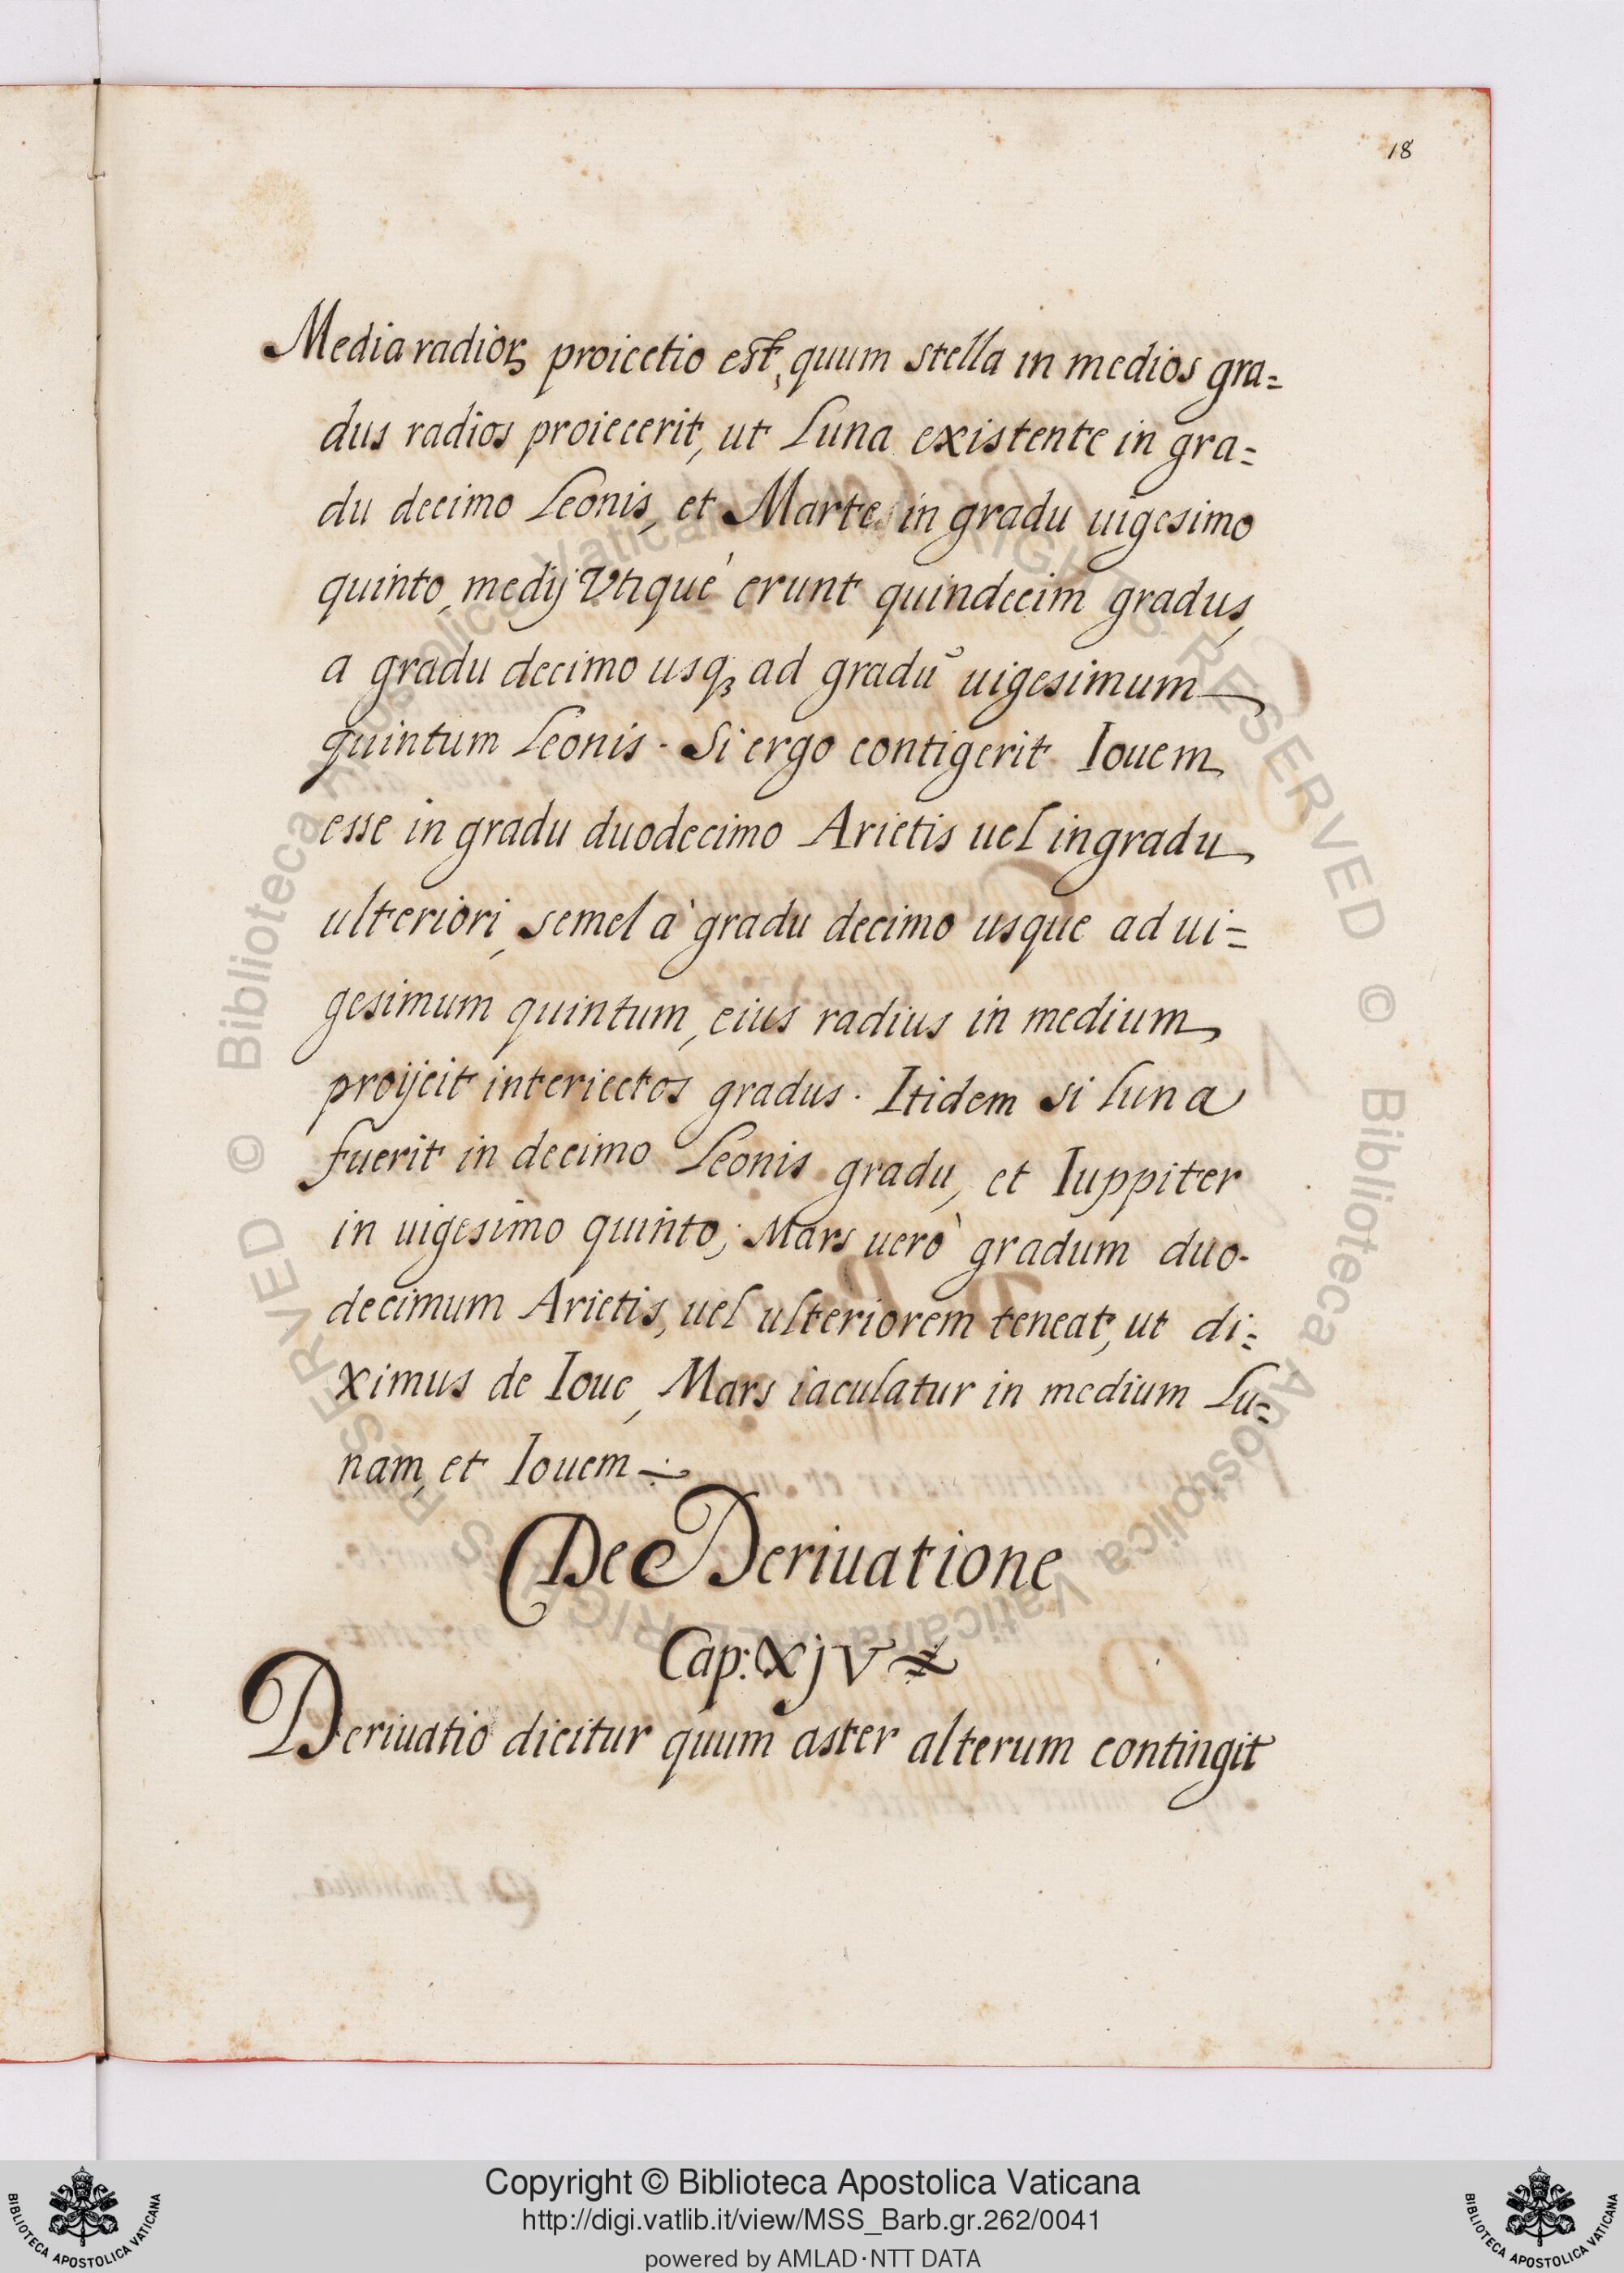 18
Media radioꝝ proiectio est, quum stella in medios gra=
dus radios proiecerit, ut Luna existente in gra=
du decimo Leonis, et Marte in gradu uigesimo
quinto, medij Vtiquè erunt quindecim gradus,
a gradu decimo usqꝫ ad gradũ uigesimum
quintum Leonis. Si ergo contigerit Iouem
esse in gradu duodecimo Arietis uel in gradu
ulteriori, semel à gradu decimo usque ad ui=
gesimum quintum, eius radius in medium
proijcit interiectos gradus. Itidem si Luna
fuerit in decimo Leonis gradu, et Iuppiter
in uigesimo quinto; Mars uerò gradum duo-
decimum Arietis, uel ulteriorem teneat, ut di=
ximus de Ioue, Mars iaculatur in medium Lu=
nam, et Iouem
De Deriuatione
Cap: XjV
Deriuatio dicitur quum aster alterum contingit
© Biblioteca Apostolica Vaticana ALL RIGHTS RESERVED
© Biblioteca Apostolica Vaticana ALL RIGHTS RESERVED
Copyright © Biblioteca Apostolica Vaticana
http://digi.vatlib.it/view/MSS_Barb.gr.262/0041
powered by AMLAD·NTT DATA
BIBLIOTECA APOSTOLICA VATICANA
BIBLIOTECA APOSTOLICA VATICANA